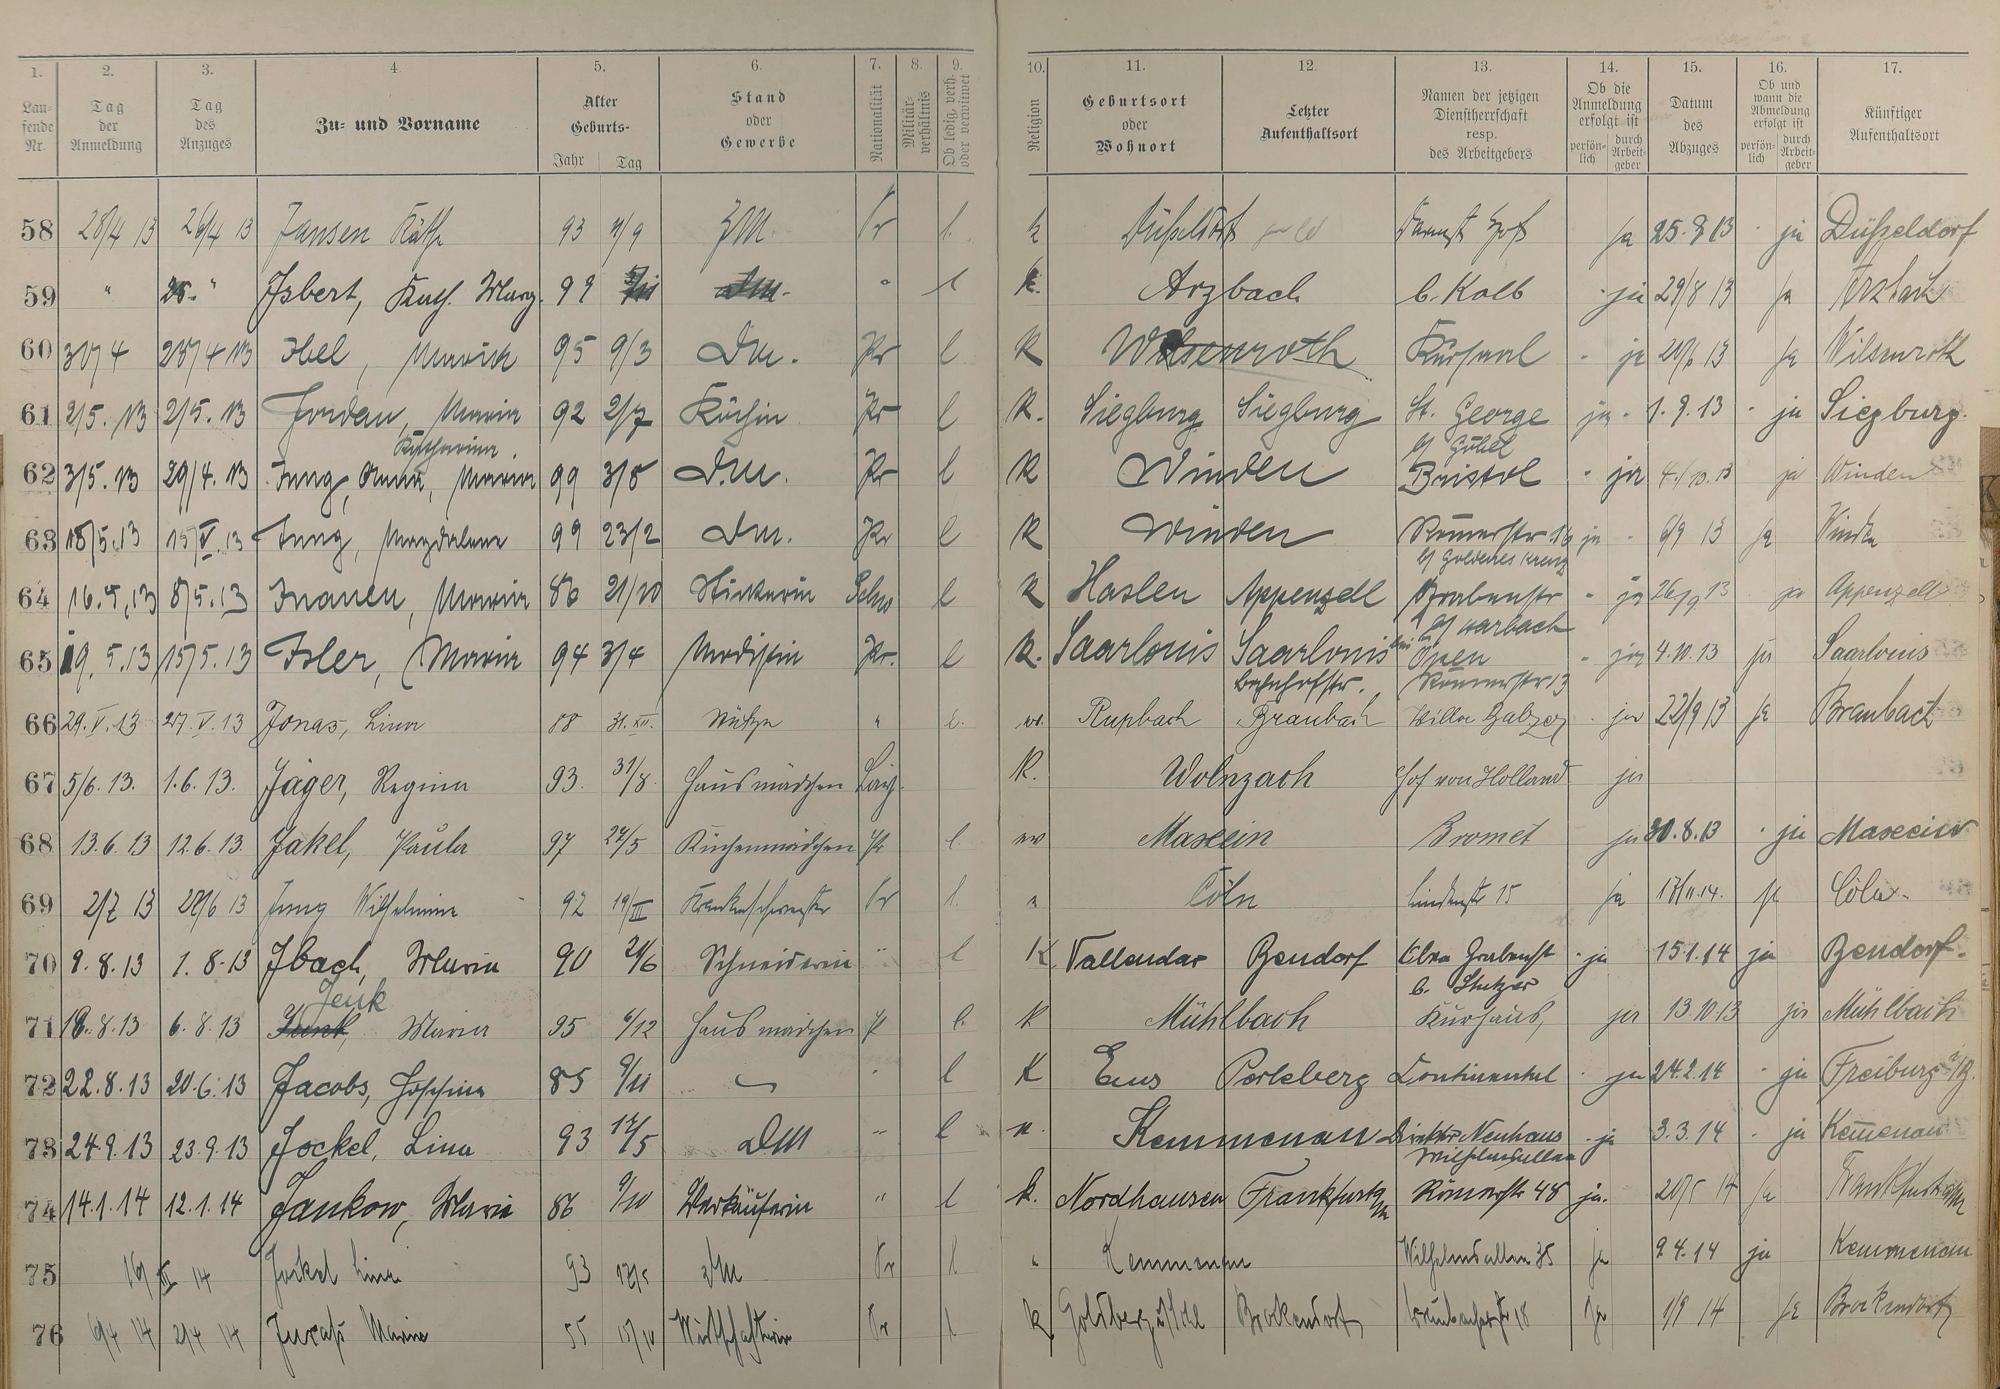 1. 2. 3. 4. 5. 6. 7. 8. 9. 10. 11. 12. 13. 14. 15. 16. 17.
Laufende Nr. Tag der Anmeldung Tag des Anzuges Zu- und Vorname Alter Geburts- Jahr Tag Stand oder Gewerbe Nationalität Militärverhältnis Ob ledig, verh. oder verwitwet Religion Geburtsort oder Wohnort Letzter Aufenthaltsort Namen der jetzigen Dienstherrschaft resp. des Arbeitgebers Ob die Anmeldung erfolgt ist persönlich durch Arbeitgeber Datum des Abzuges Ob und wann die Abmeldung erfolgt ist persönlich durch Arbeitgeber Künftiger Aufenthaltsort
58 28/4 13 26/4 13 Jansen Käthe 93 Pr l. k Düsseldorf ja 25.8 13 " ja Düsseldorf
59 " Isbert, Kath. Marg. 99 " l k. Arzbach b. Kalb " ja 29/8 13 ja Arzbach
60 30/4 13 Ibel, Maria 95 9/3 Dm. Pr l K Kursaal " ja 13 ja Wilsenroth
61 2/5. 13 2/5. 13 Jordan, Maria 92 2/7 Köchin Pr l K. Siegburg Siegburg St. George ja " 1.9.13 " ja Siegburg.
62 3/5. 13 29/4. 13 Jung, Anna, Maria Katharina 99 3/8 D.M. Pr l K Winden Bristol " ja 4./10.13 ja Winden
63 18/5.13 15/V.13 Jung, Magdalena 99 23/2 Dm. Pr l K Winden Römerstr 16 ja " 6/9 13 ja Winden
b/ Goldenes Kreuz
64 16.5.13 8/5.13 Inauen, Maria 86 21/10 Stickerin Schw l K Haslen Appenzell Grabenstr " ja 26/9 13 ja Appenzell
65 19.5.13 15/5.13 Isler, Maria 94 3/4 Modistin Pr. l K. Saarlouis Saarlouis " ja 4.10.13 ja Saarlouis
Bahnhofstr. Römerstr 13
66 29.V.13 27.V.13 Jonas, Lina 88 31.XII. Stütze " l. Rupbach Braubach Villa Balzer " ja 22/9 13 ja Braubach
67 5/6.13. 1.6.13. Jäger, Regina 93. 31/8. Hausmädchen Bay. K. Wolnzach Hof von Holland ja
68 13.6.13 12.6.13. Jäkel, Paula 97 27/5 Küchenmädchen Pr l. Bromet ja 30.8.13 " ja
69 2/7 13 28/6 13 Jung Wilhelmine 92 19/III Krankenschwester Pr l. Cöln Lindenstr 15 ja 17/11.14. ja Cöln.
70 9.8.13 1.8.13 Ibach, Maria 90 Schneiderin " l K Vallendar Bendorf Obere Grabenst " ja 15.1.14 ja Bendorf.
b. Stutzer
71 6.8.13 Jenk Maria 95 6/12 Hausmädchen P l. k Mühlbach Kurhaus, ja 13.10.13 ja Mühlbach
72 22.8.13 20.6.13 Jacobs, Josephine 85 9/11 " l K Ems Perleberg Continental " ja 24.2.14 " ja Freiburg i/B.
73 24.9.13 23.9.13 Jockel, Lina 93 17/5 DM " l Kemmenau Direktor Neuhaus " ja 3.3.14 " ja Kemenau
Wilhelmsallee
74 14.1.14 12.1.14 Jankow, Maria 86 9/10 Verkäuferin " l k. Nordhausen Frankfurt a/M Römerstr 48 ja. 14 ja Frankfurt a/M
75 III 14 Jockel Lina 93 17/5 DM Pr l " Kemmenau Wilhelmsallee 35 ja 9.4.14 ja Kemmenau
76 2/4 14 Marie 55 Wirtschafterin Pr l k Brockendorf ja 1/9 14 ja Brockendorf